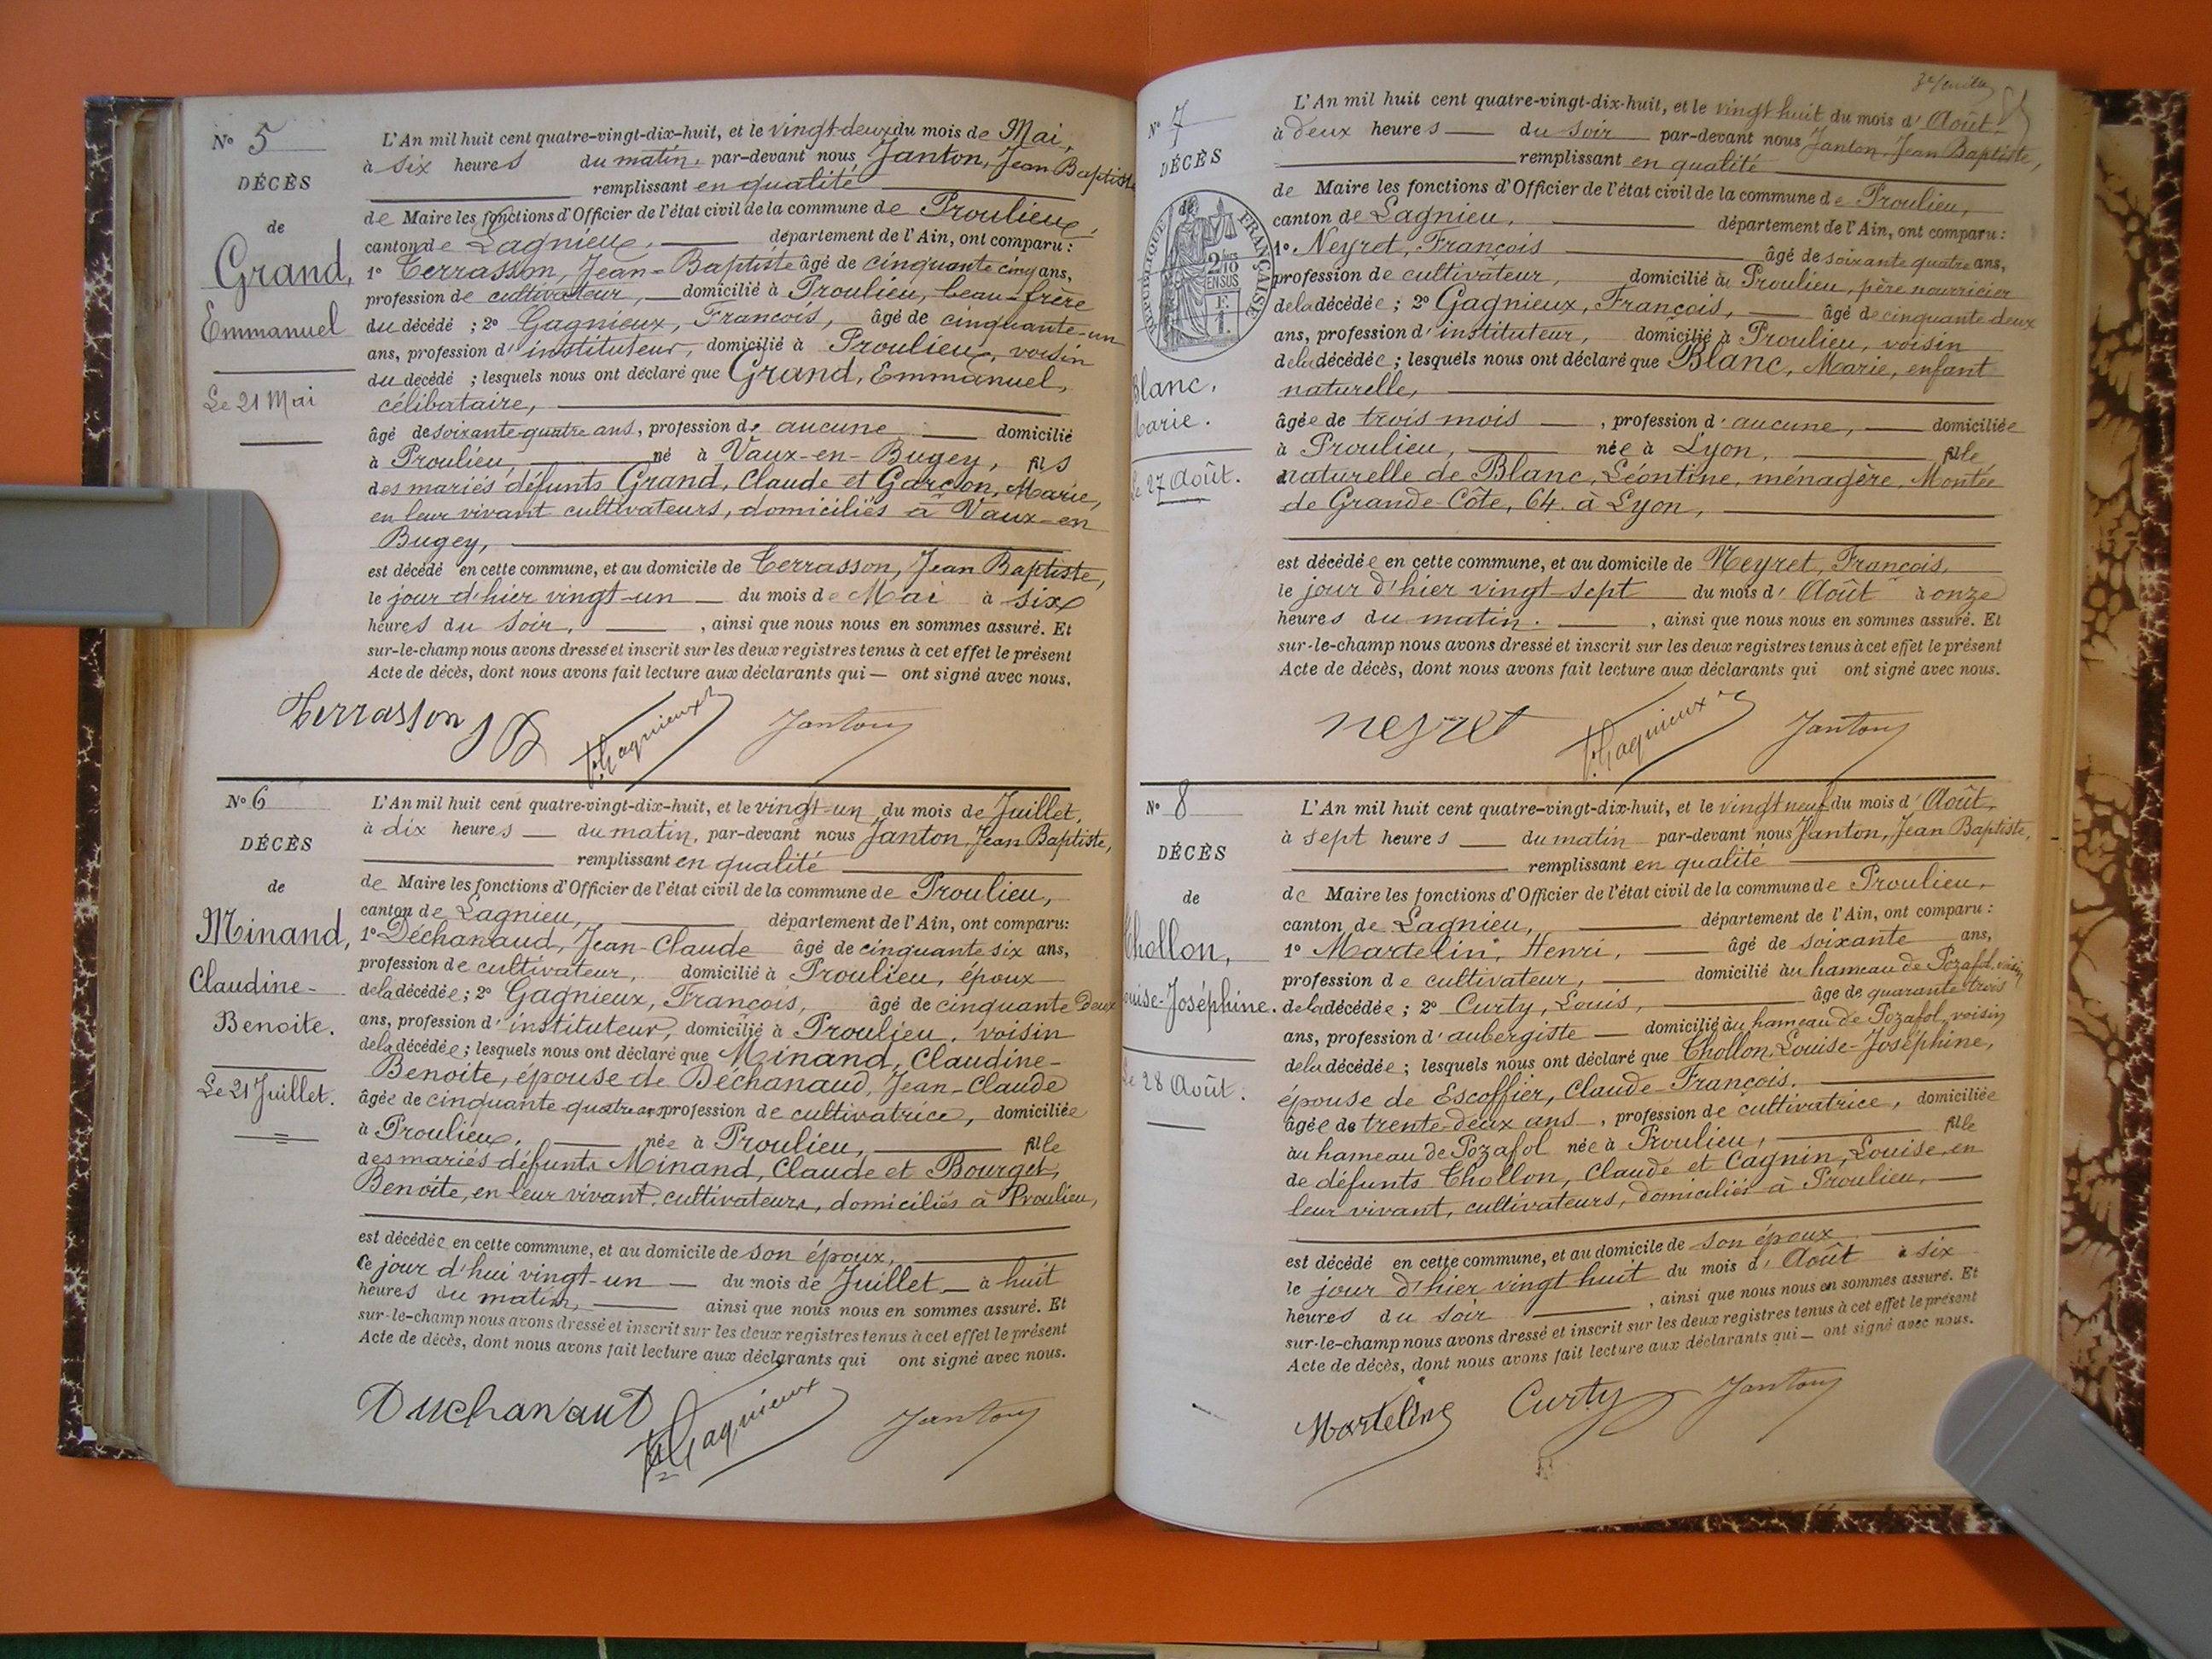 N° 5
DÉCÈS
de
Grand,
Emmanuel
Le 21 Mai
L'An mil huit cent quatre-vingt-dix-huit, et le vingt-deux du mois de Mai,
à six heures du matin, par-devant nous Janton, Jean Baptiste
remplissant en qualité
de Maire les fonctions d'Officier de l'état civil de la commune de Proulieu,
canton de Lagnieu, département de l'Ain, ont comparu :
1° Terrasson, Jean-Baptiste âgé de cinquante cinq ans,
profession de cultivateur, domicilié à Proulieu, beau-frère
du décédé ; 2° Gagnieux, François, âgé de cinquante-un
ans, profession d'instituteur, domicilié à Proulieu, voisin
du décédé ; lesquels nous ont déclaré que Grand, Emmanuel,
célibataire,
âgé de soixante-quatre ans, profession de aucune domicilié
à Proulieu, né à Vaux-en-Bugey, fils
des mariés défunts Grand, Claude et Garcon, Marie,
en leur vivant cultivateurs, domiciliés à Vaux-en
Bugey,
est décédé en cette commune, et au domicile de Terrasson, Jean Baptiste,
le jour d'hier vingt-un du mois de Mai à six
heures du soir, , ainsi que nous nous en sommes assuré. Et
sur-le-champ nous avons dressé et inscrit sur les deux registres tenus à cet effet le présent
Acte de décès, dont nous avons fait lecture aux déclarants qui — ont signé avec nous.
Terrasson JB F. Gagnieux Janton
N° 6
DÉCÈS
de
Minand,
Claudine-
Benoite.
Le 21 Juillet.
L'An mil huit cent quatre-vingt-dix-huit, et le vingt-un du mois de Juillet,
à dix heures du matin, par-devant nous Janton, Jean Baptiste,
remplissant en qualité
de Maire les fonctions d'Officier de l'état civil de la commune de Proulieu,
canton de Lagnieu, département de l'Ain, ont comparu:
1° Déchanaud, Jean-Claude âgé de cinquante six ans,
profession de cultivateur, domicilié à Proulieu, époux
de la décédée ; 2° Gagnieux, François, âgé de cinquante Deux
ans, profession d'instituteur, domicilié à Proulieu, voisin
de la décédée ; lesquels nous ont déclaré que Minand, Claudine-
Benoite, épouse de Déchanaud, Jean-Claude
âgée de cinquante-quatre ans profession de cultivatrice, domiciliée
à Proulieu, née à Proulieu, fille
des mariés défunts Minand, Claude et Bourget,
Benoite, en leur vivant cultivateurs, domiciliés à Proulieu,
est décédée en cette commune, et au domicile de son époux,
Ce jour d'hui vingt-un du mois de Juillet à huit
heures du matin, ainsi que nous nous en sommes assuré. Et
sur-le-champ nous avons dressé et inscrit sur les deux registres tenus à cet effet le présent
Acte de décès, dont nous avons fait lecture aux déclarants qui ont signé avec nous.
Duchanaud F. Gagnieux Janton
3e feuillet
N° 7
DÉCÈS
de
RÉPUBLIQUE FRANÇAISE
2/10 EN SUS
Blanc.
Marie.
Le 27 Août.
L'An mil huit cent quatre-vingt-dix-huit, et le vingt huit du mois d'Août
à deux heures du soir par-devant nous Janton, Jean Baptiste,
remplissant en qualité
de Maire les fonctions d'Officier de l'état civil de la commune de Proulieu,
canton de Lagnieu, département de l'Ain, ont comparu:
1° Neyret, François âgé de soixante quatre ans,
profession de cultivateur, domicilié à Proulieu, père nourricier
de la décédée ; 2° Gagnieux, François, âgé de cinquante deux
ans, profession d'instituteur, domicilié à Proulieu, voisin
de la décédée ; lesquels nous ont déclaré que Blanc, Marie, enfant
naturelle,
âgée de trois mois , profession d'aucune, domiciliée
à Proulieu, née à Lyon, fille
naturelle de Blanc, Léontine, ménagère, Montée
de Grande Côte, 64, à Lyon,
est décédée en cette commune, et au domicile de Neyret, François,
le jour d'hier vingt sept du mois d'Août à onze
heures du matin. , ainsi que nous nous en sommes assuré. Et
sur-le-champ nous avons dressé et inscrit sur les deux registres tenus à cet effet le présent
Acte de décès, dont nous avons fait lecture aux déclarants qui ont signé avec nous.
neyret F. Gagnieux Janton
N° 8
DÉCÈS
de
Chollon,
ouise-Joséphine.
Le 28 Août.
L'An mil huit cent quatre-vingt-dix-huit, et le vingt neuf du mois d'Août,
à sept heures du matin par-devant nous Janton, Jean Baptiste,
remplissant en qualité
de Maire les fonctions d'Officier de l'état civil de la commune de Proulieu,
canton de Lagnieu, département de l'Ain, ont comparu :
1° Martelin, Henri, âgé de soixante ans,
profession de cultivateur, domicilié au hameau de Pozafol, voisin
de la décédée ; 2° Curty, Louis, âgé de quarante-trois
ans, profession d'aubergiste domicilié au hameau de Pozafol, voisin
de la décédée ; lesquels nous ont déclaré que Chollon, Louise-Joséphine,
épouse de Escoffier, Claude-François.
âgée de trente-deux ans , profession de cultivatrice, domiciliée
au hameau de Pozafol née à Proulieu, fille
de défunts Chollon, Claude et Cagnin, Louise en
leur vivant, cultivateurs, domiciliés à Proulieu,
est décédé en cette commune, et au domicile de son époux
le jour d'hier vingt huit du mois d'Août à six
heures du soir , ainsi que nous nous en sommes assuré. Et
sur-le-champ nous avons dressé et inscrit sur les deux registres tenus à cet effet le présent
Acte de décès, dont nous avons fait lecture aux déclarants qui — ont signé avec nous.
Marteline Curty Janton